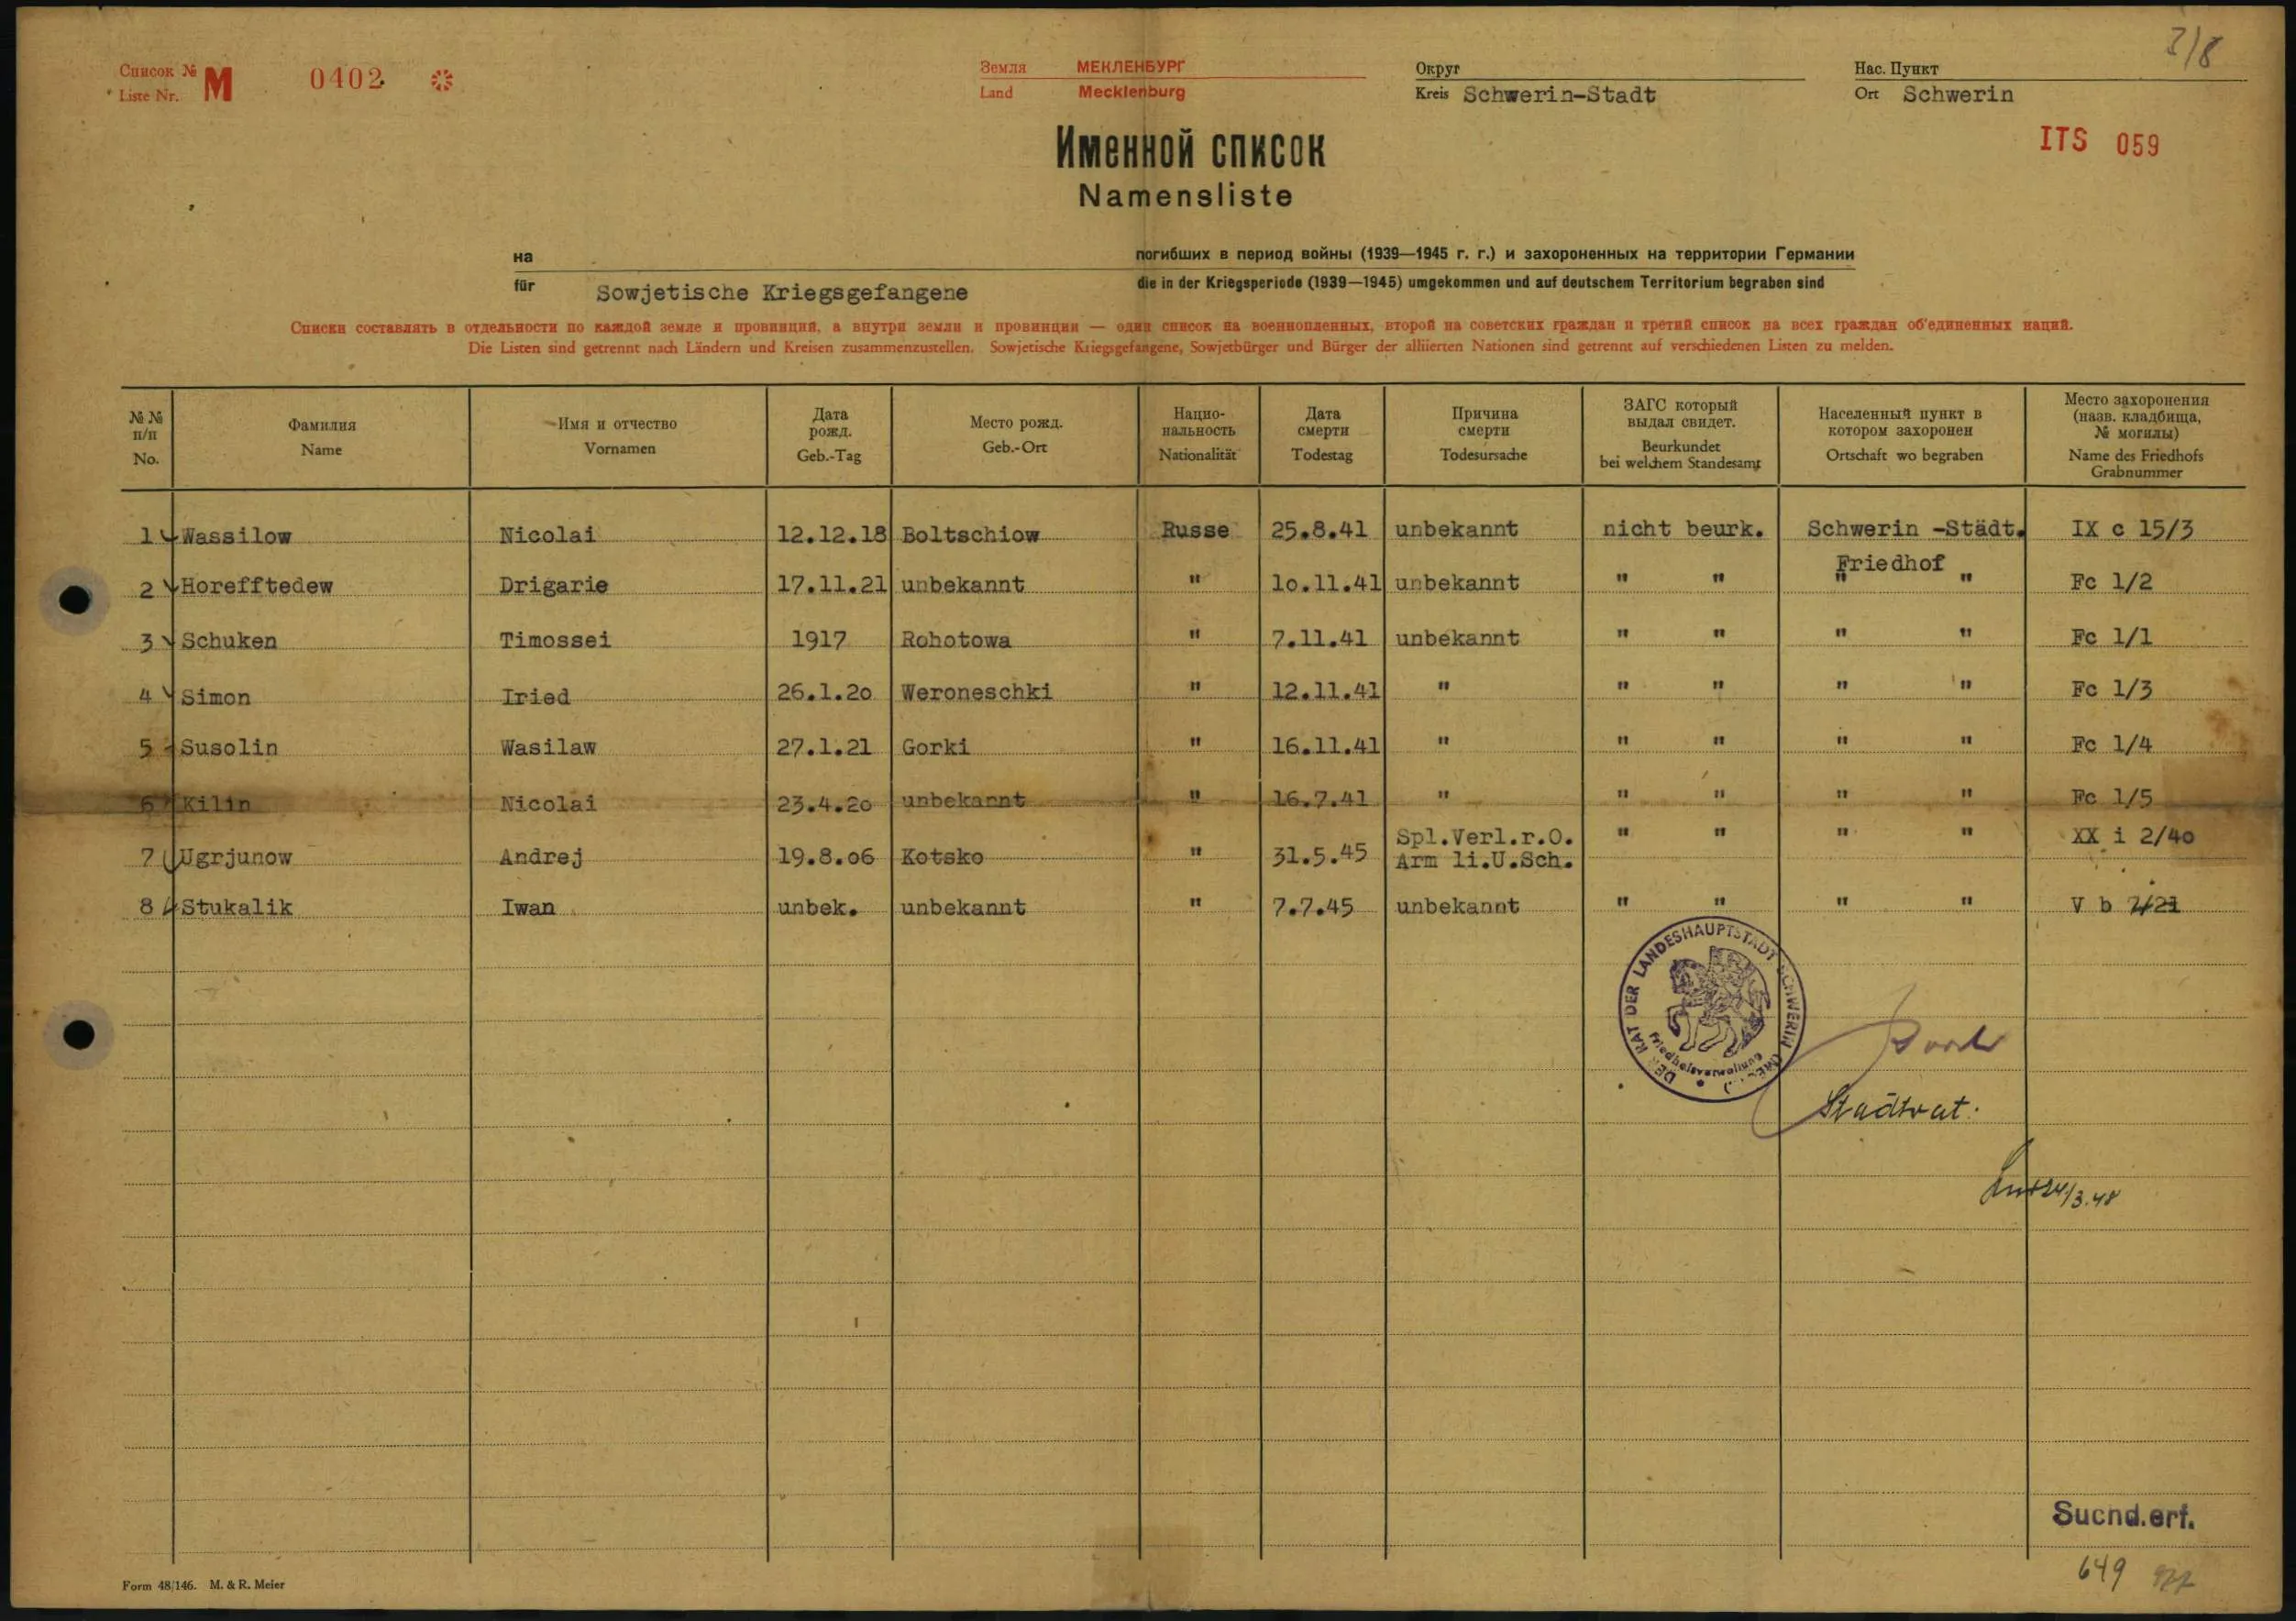 Список № M 0402 Земля МЕКЛЕНБУРГ Округ Нас. Пункт
Liste Nr. Land Mecklenburg Kreis Schwerin-Stadt Ort Schwerin
Именной список
ITS 059
Namensliste
на погибших в период войны (1939—1945 г. г.) и захороненных на территории Германии
für Sowjetische Kriegsgefangene die in der Kriegsperiode (1939—1945) umgekommen und auf deutschem Territorium begraben sind
Списки составлять в отдельности по каждой земле и провинций, а внутри земли и провинции — один список на военнопленных, второй на советских граждан и третий список на всех граждан об'единенных наций.
Die Listen sind getrennt nach Ländern und Kreisen zusammenzustellen. Sowjetische Kriegsgefangene, Sowjetbürger und Bürger der alliierten Nationen sind getrennt auf verschiedenen Listen zu melden.
№ № п/п No.
Фамилия Name
Имя и отчество Vornamen
Дата рожд. Geb.-Tag
Место рожд. Geb.-Ort
Нацио-нальность Nationalität
Дата смерти Todestag
Причина смерти Todesursache
ЗАГС который выдал свидет. Beurkundet bei welchem Standesamt
Населенный пункт в котором захоронен Ortschaft wo begraben
Место захоронения (назв. кладбища, № могилы) Name des Friedhofs Grabnummer
1 Wassilow Nicolai 12.12.18 Boltschiow Russe 25.8.41 unbekannt nicht beurk. Schwerin -Städt. IX c 15/3
Friedhof
2 Horefftedew Drigarie 17.11.21 unbekannt " 10.11.41 unbekannt " " " " Fc 1/2
3 Schuken Timossei 1917 Rohotowa " 7.11.41 unbekannt " " " " Fc 1/1
4 Simon Iried 26.1.20 Weroneschki " 12.11.41 " " " " " Fc 1/3
5 Susolin Wasilaw 27.1.21 Gorki " 16.11.41 " " " " " Fc 1/4
6 Kilin Nicolai 23.4.20 unbekannt " 16.7.41 " " " " " Fc 1/5
7 Ugrjunow Andrej 19.8.06 Kotsko " 31.5.45 Spl.Verl.r.O. " " " " XX i 2/40
Arm li.U.Sch.
8 Stukalik Iwan unbek. unbekannt " 7.7.45 unbekannt " " " " V b
DER RAT DER LANDESHAUPTSTADT SCHWERIN
Friedhofsverwaltung
Stadtrat.
24/3.48
Suchd.erf.
649
Form 48/146. M. & R. Meier